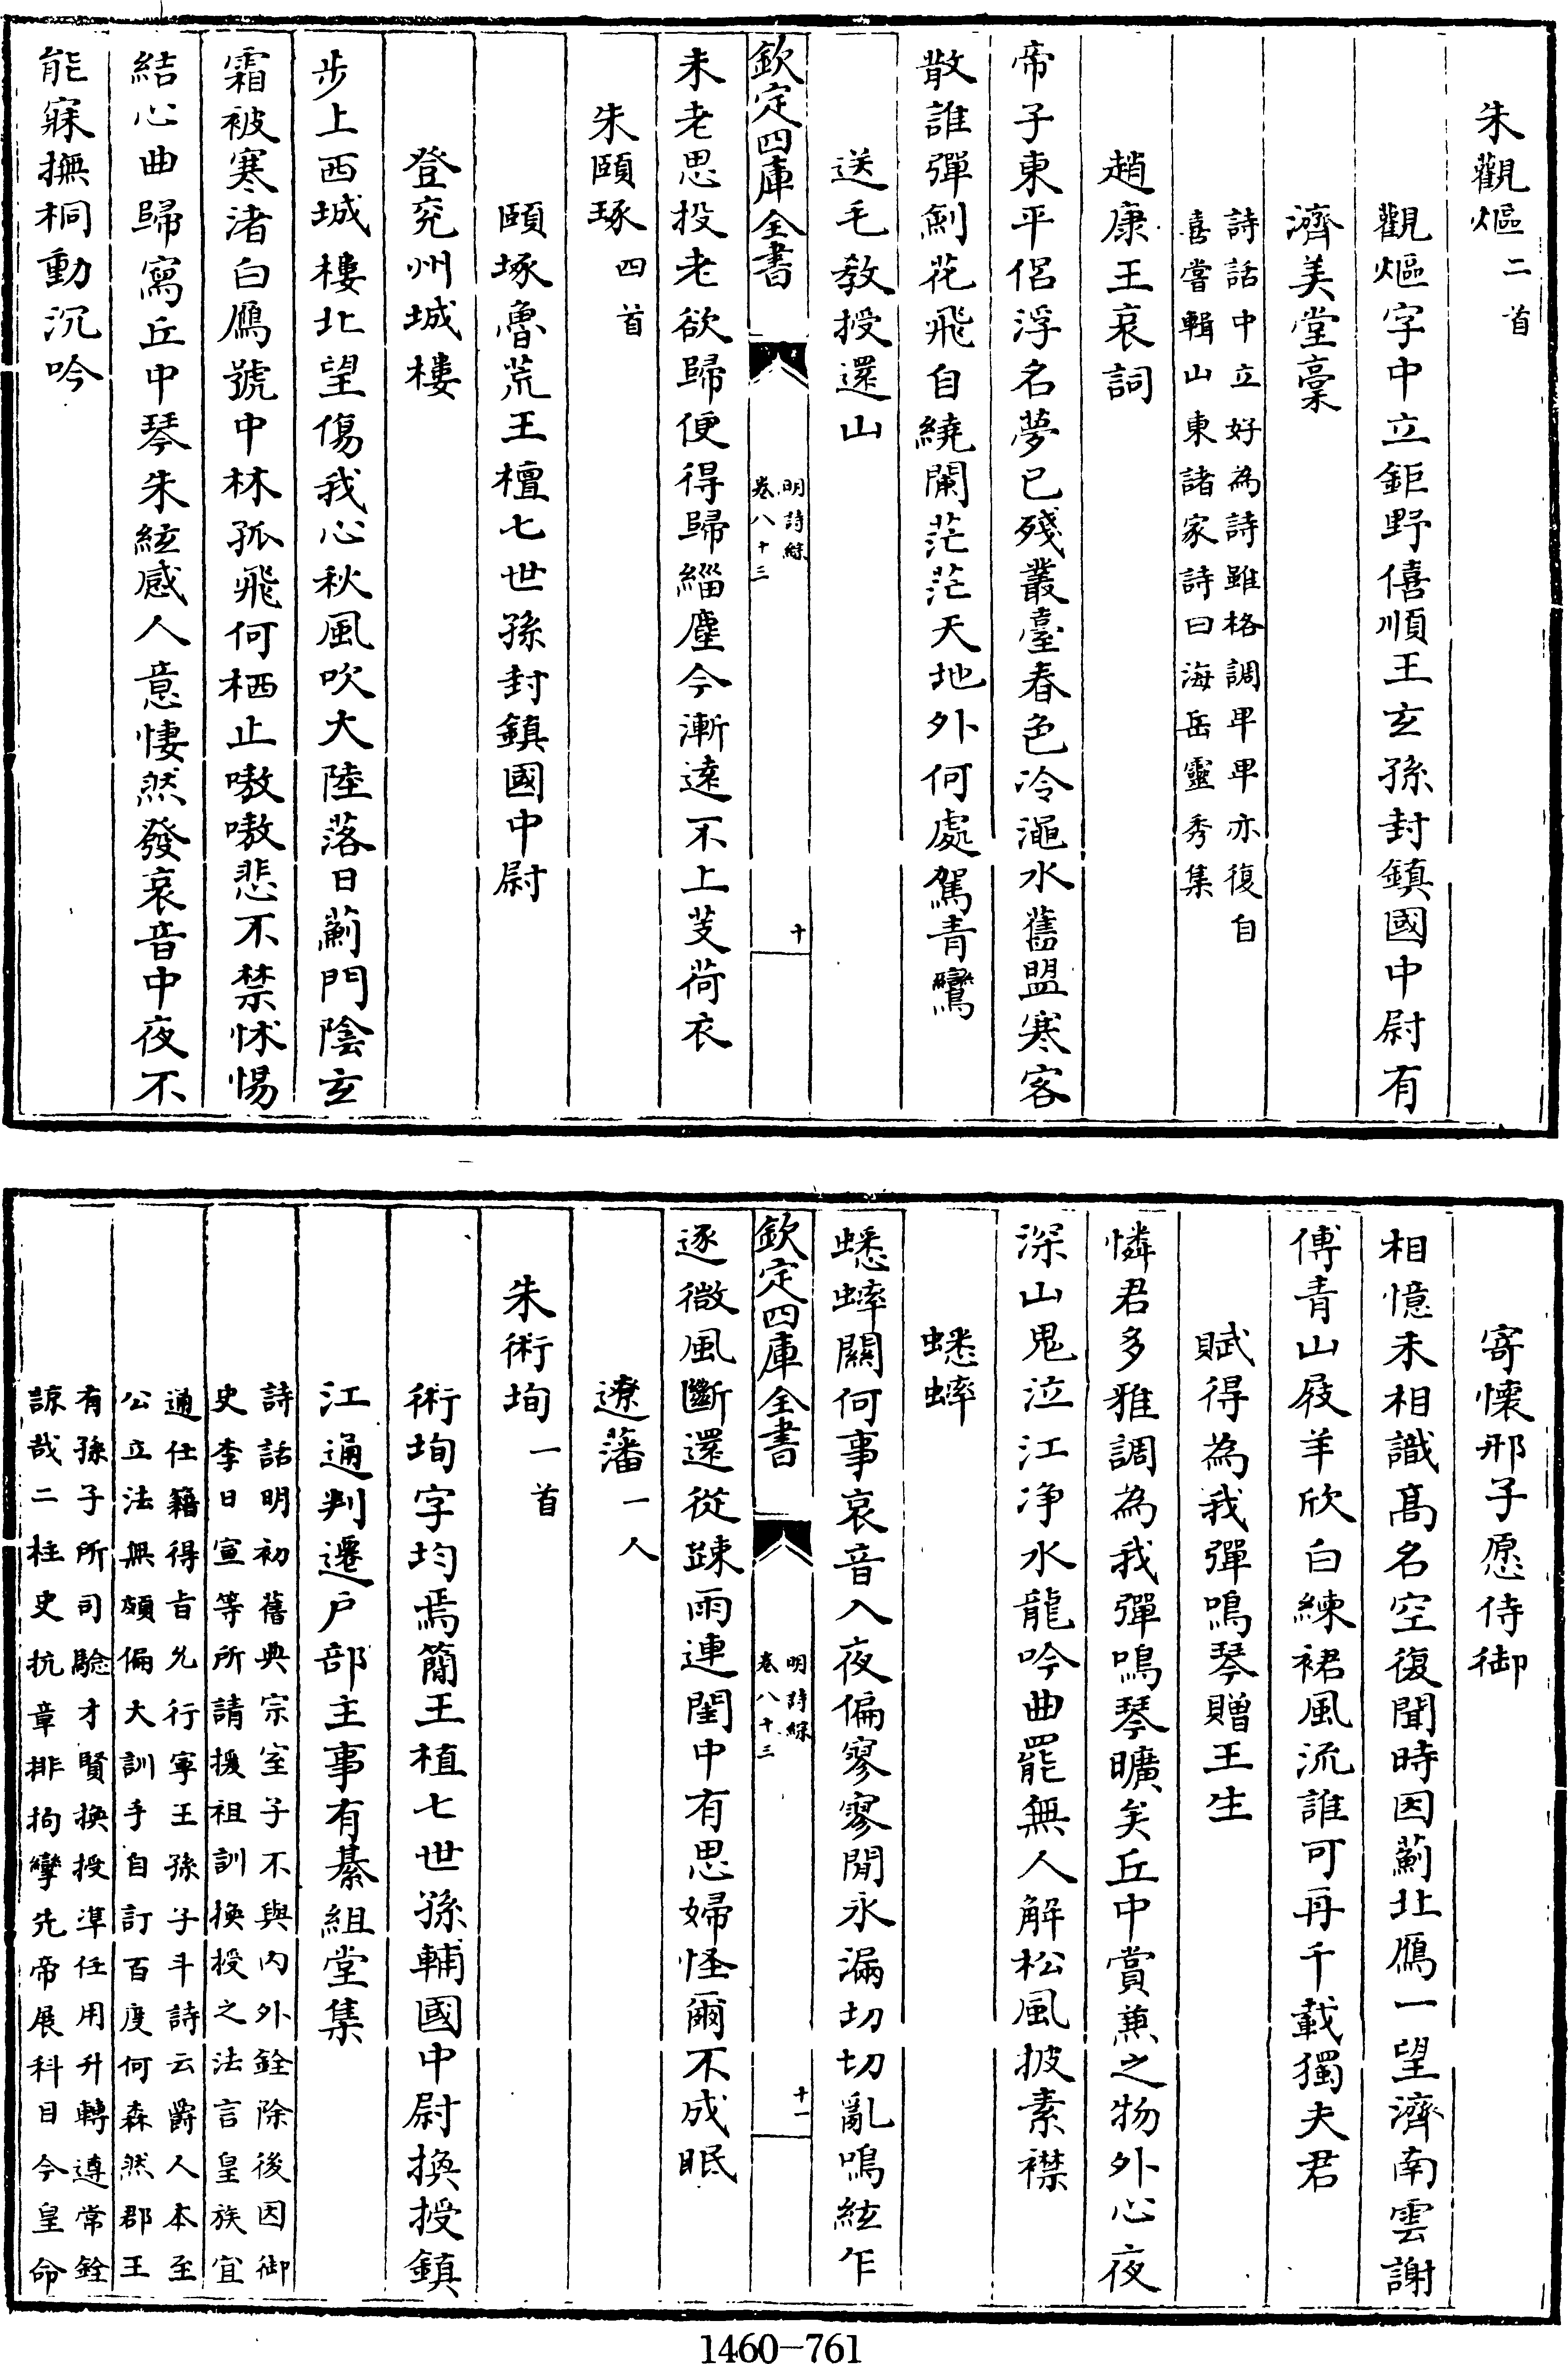 朱觀熰二首
觀熰字中立鉅野僖順王玄孫封鎮國中尉有
濟美堂稾
詩話中立好為詩雖格調卑卑亦復自
喜嘗輯山東諸家詩曰海岳靈秀集
趙康王哀詞
帝子東平侣浮名夢已殘叢臺春色冷滏水舊盟寒客
散誰彈劍花飛自繞闌茫茫天地外何處駕青鸞
送毛教授還山
欽定四庫全書
明詩綜
卷八十三
十
未老思投老欲歸便得歸緇塵今漸逺不上芰荷衣
朱頤㻬四首
頤㻬魯荒王檀七世孫封鎮國中尉
登兖州城樓
步上西城樓北望傷我心秋風吹大陸落日薊門陰玄
霜被寒渚白鴈號中林孤飛何栖止嗷嗷悲不禁怵惕
結心曲歸寫丘中琴朱絃感人意悽然發哀音中夜不
能寐撫桐動沉吟
寄懐邢子愿侍御
相憶未相識髙名空復聞時因薊北鴈一望濟南雲謝
傅青山屐羊欣白練裙風流誰可再千載獨夫君
賦得為我彈鳴琴贈王生
憐君多雅調為我彈鳴琴曠矣丘中賞蕭之物外心夜
深山鬼泣江净水龍吟曲罷無人解松風披素襟
蟋蟀
蟋蟀闗何事哀音入夜偏寥寥閒永漏切切亂鳴絃乍
欽定四庫全書
明詩綜
卷八十三
十一
逐微風斷還從疎雨連閨中有思婦怪爾不成眠
遼藩一人
朱術㘦一首
術㘦字均焉簡王植七世孫輔國中尉換授鎮
江通判遷户部主事有綦組堂集
詩話明初舊典宗室子不與内外銓除後因御
史李日宣等所請援祖訓換授之法言皇族宜
通仕籍得旨允行寧王孫子斗詩云爵人本至
公立法無頗偏大訓手自訂百度何森然郡王
有孫子所司騐才賢換授凖任用升轉遵常銓
諒哉二柱史抗章排拘攣先帝展科目今皇命
1460-761